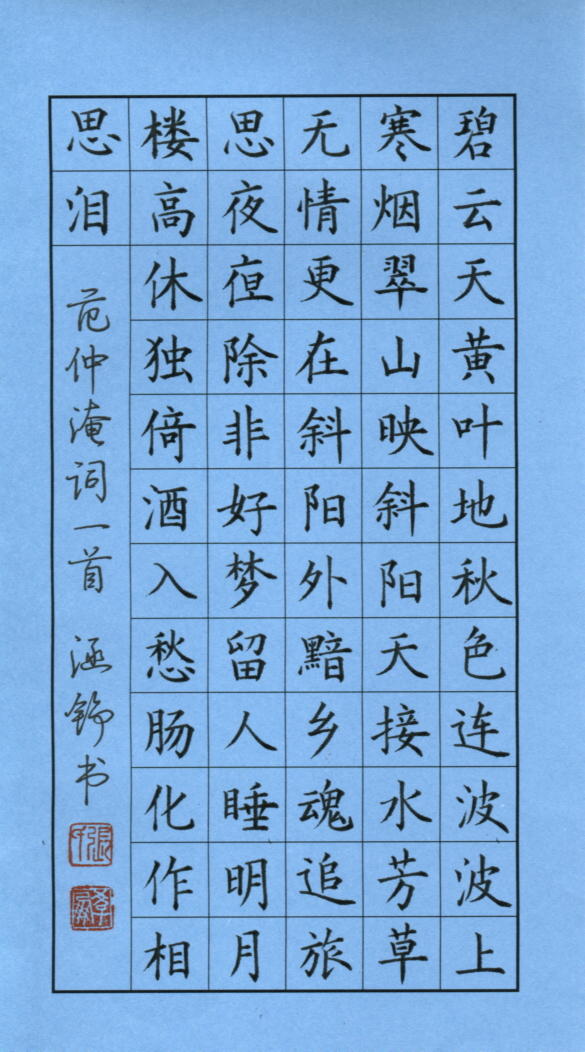 碧云天黄叶地秋色连波波上
寒烟翠山映斜阳天接水芳草
无情更在斜阳外黯乡魂追旅
思夜亱除非好梦留人睡明月
楼高休独倚酒入愁肠化作相
思泪
范仲淹词一首 涵铮书